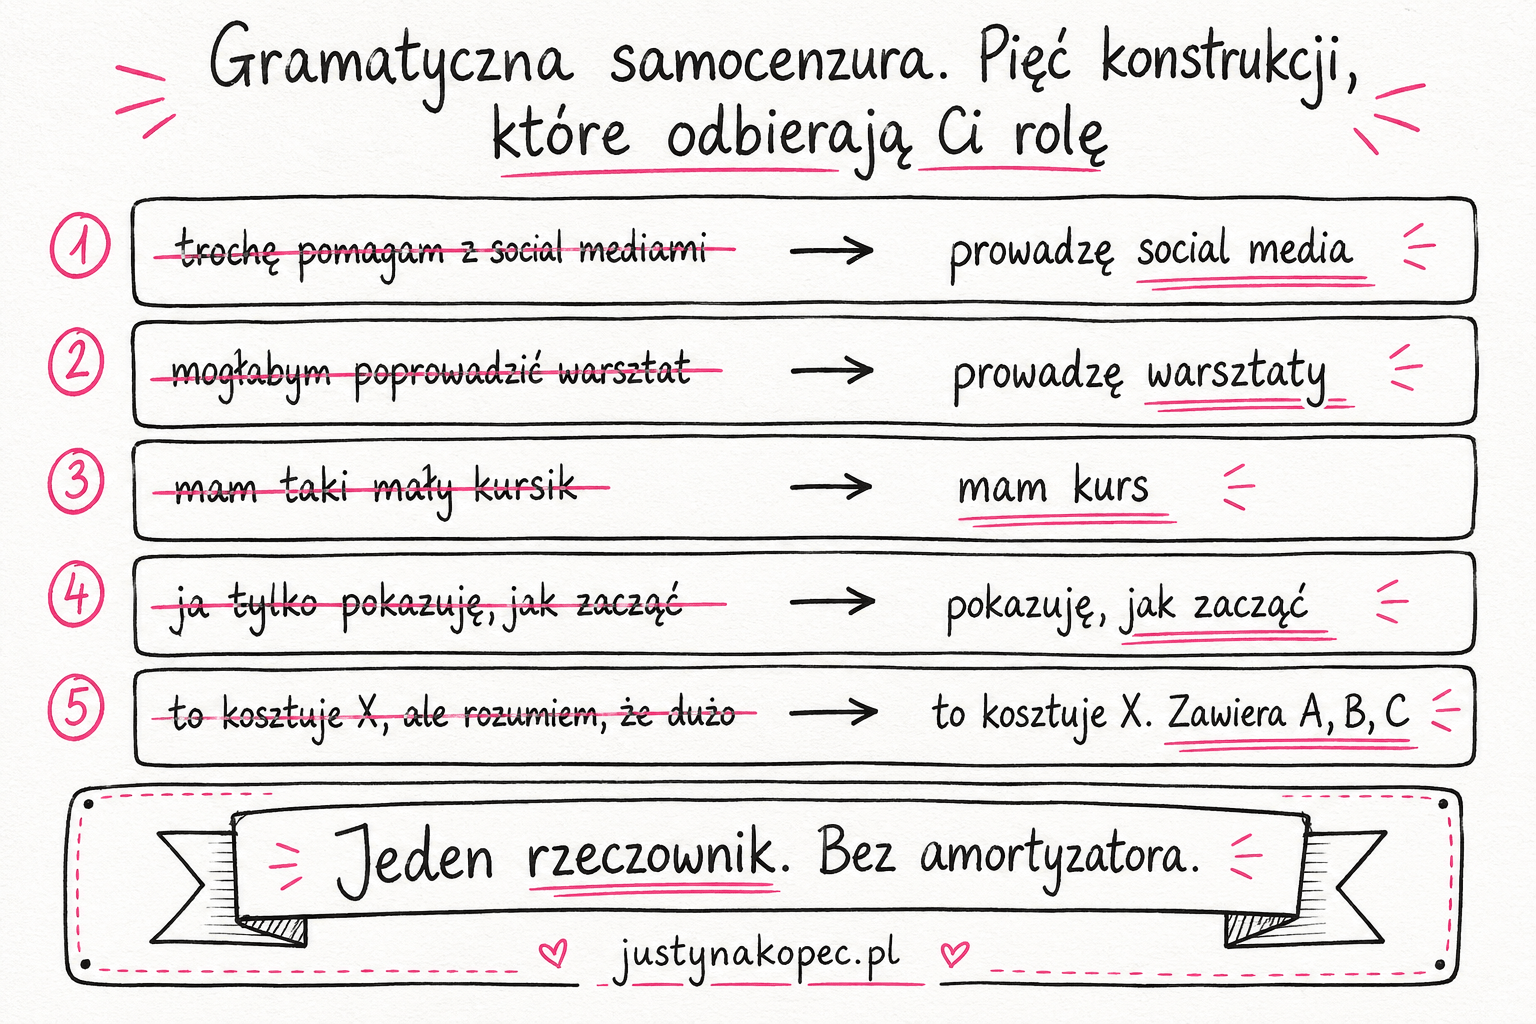 Gramatyczna samocenzura. Pięć konstrukcji,
które odbierają Ci rolę
1 trochę pomagam z social mediami → prowadzę social media
2 mogłabym poprowadzić warsztat → prowadzę warsztaty
3 mam taki mały kursik → mam kurs
4 ja tylko pokazuję, jak zacząć → pokazuję, jak zacząć
5 to kosztuje X, ale rozumiem, że dużo → to kosztuje X. Zawiera A, B, C
Jeden rzeczownik. Bez amortyzatora.
justynakopec.pl